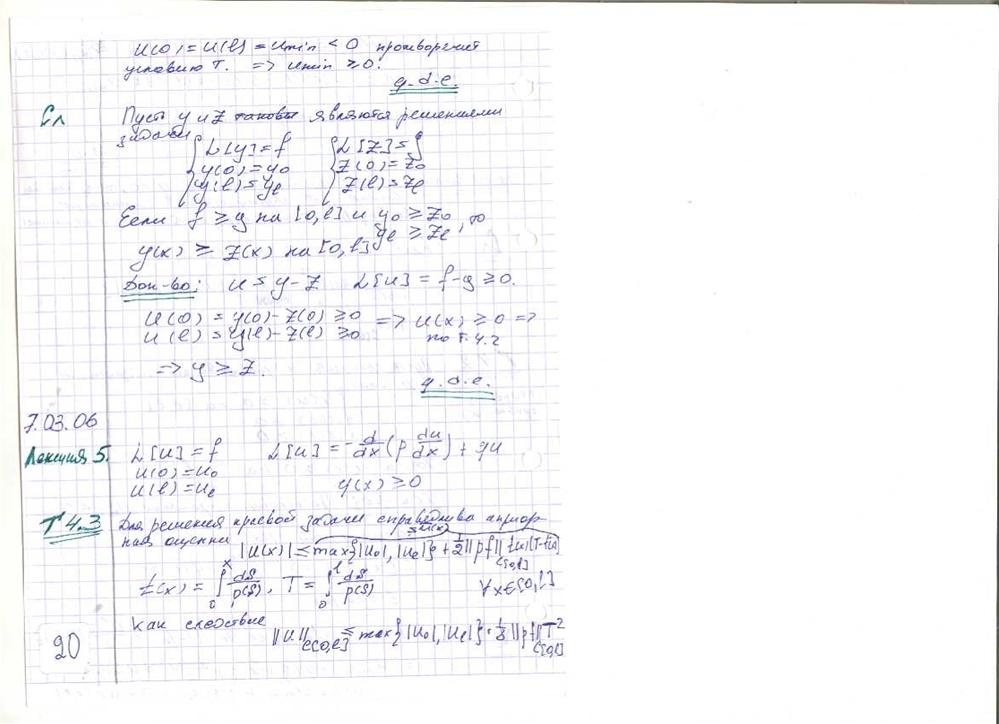 u(0) = u(l) = umin < 0 противоречит
условию Т. => umin ≥ 0.
q.d.e.
Сл Пусть y и z являются решениями
задачи
L[y] = f L[z] = g
y(0) = y0 z(0) = z0
y(l) = yl z(l) = zl
Если f ≥ g на [0,l] и y0 ≥ z0, то
yl ≥ zl
y(x) ≥ z(x) на [0,l]
Док-во: u = y - z L[u] = f - g ≥ 0.
u(0) = y(0) - z(0) ≥ 0 => u(x) ≥ 0 =>
u(l) = y(l) - z(l) ≥ 0 по Т.4.2
=> y ≥ z.
q.d.e.
7.03.06
Лекция 5. L[u] = f L[u] = -d/dx (p du/dx) + qu
u(0) = u0
u(l) = ul q(x) ≥ 0
Т 4.3 Для решения краевой задачи справедлива априор
ная оценка
|u(x)| ≤ max{|u0|, |ul|} + 1/2 ||pf||C[0,l] t(x)(T-t(x))
t(x) = ∫0x ds/p(s), T = ∫0l ds/p(s) ∀x∈[0,l]
Как следствие
||u||C[0,l] ≤ max{|u0|, |ul|} + 1/8 ||pf||C[0,l] T²
20